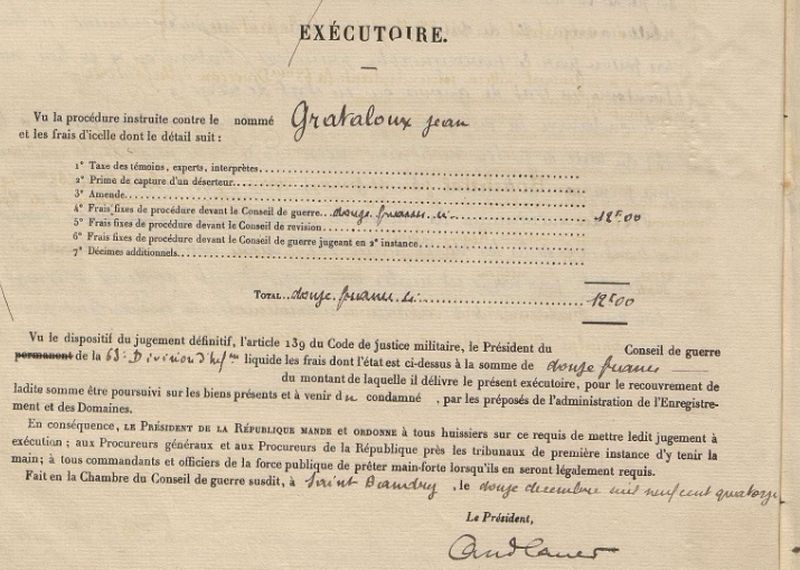 EXÉCUTOIRE.
Vu la procédure instruite contre le nommé Grataloux Jean
et les frais d'icelle dont le détail suit :
1° Taxe des témoins, experts, interprètes
2° Prime de capture d'un déserteur
3° Amende
4° Frais fixes de procédure devant le Conseil de guerre... douze francs ci 12F00
5° Frais fixes de procédure devant le Conseil de revision
6° Frais fixes de procédure devant le Conseil de guerre jugeant en 2e instance
7° Décimes additionnels
TOTAL.. douze francs ci 12F00
Vu le dispositif du jugement définitif, l'article 139 du Code de justice militaire, le Président du Conseil de guerre
permanent de la 63e Division d'Infrie liquide les frais dont l'état est ci-dessus à la somme de douze francs
du montant de laquelle il délivre le présent exécutoire, pour le recouvrement de
ladite somme être poursuivi sur les biens présents et à venir du condamné , par les préposés de l'administration de l'Enregistre-
ment et des Domaines.
En conséquence, LE PRÉSIDENT DE LA RÉPUBLIQUE MANDE et ORDONNE à tous huissiers sur ce requis de mettre ledit jugement à
exécution ; aux Procureurs généraux et aux Procureurs de la République près les tribunaux de première instance d'y tenir la
main; à tous commandants et officiers de la force publique de prêter main-forte lorsqu'ils en seront légalement requis.
Fait en la Chambre du Conseil de guerre susdit, à Saint Bandry , le douze decembre mil neuf cent quatorze
Le Président,